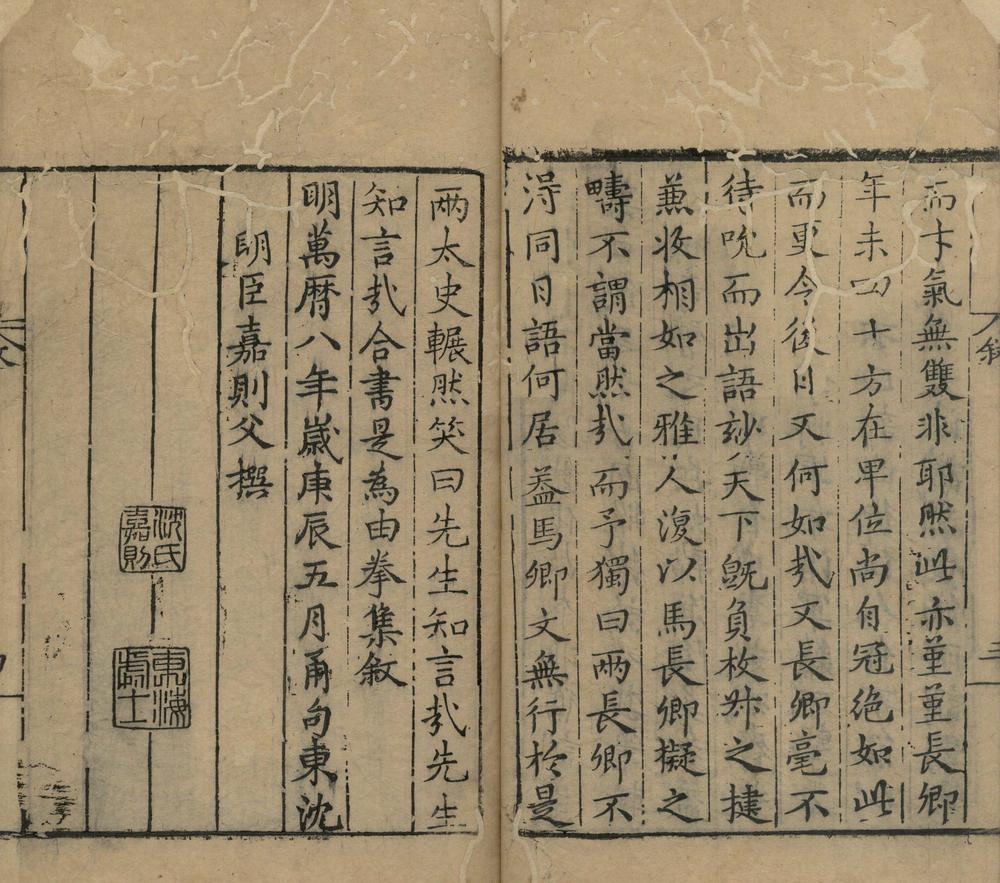 而才氣無雙非耶然此亦菫菫長卿
年未四十方在卑位尚自冠絶如此
而更令後日又何如㢤又長卿毫不
待吮而出語玅天下旣負枚叔之㨗
蒹收相如之雅人復以馬長卿擬之
疇不謂當然㢤而予獨曰兩長卿不
淂同日語何居葢馬卿文無行於是
兩太史輾然笑曰先生知言㢤先生
知言㢤合書是為由拳集敘
明萬曆八年歲庚辰五月甬句東沈
明臣嘉則父撰
沈氏嘉則